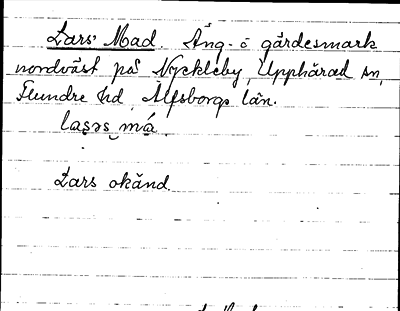 Lars' Mad. Äng- o gärdesmark
nordväst på Nyckleby, Upphärad sn,
Flundre hd, Älfsborgs län.
laşəs má.
Lars okänd.